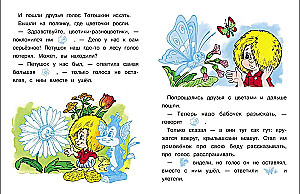 И пошли друзья голос Тотошкин искать.
Вышли на полянку, где цветочки росли.
— Здравствуйте, цветики-разноцветики, —
поклонился им , — Дело у нас к вам
серьёзное! Петушок наш где-то в лесу голос
потерял. Может, вы находили?
— Петушок у нас был, — ответила самая
большая , — только голоса не оста-
вил, с ним вместе и ушёл.
Попрощались друзья с цветами и дальше
пошли.
— Теперь надо бабочек разыскать, —
говорит .
Только сказал — а они тут как тут: кру-
жатся вокруг, крылышками машут. Стал им
домовёнок про свою беду рассказывать,
про голос расспрашивать.
— видели, но голос он не оставлял,
вместе с ним ушёл, — ответили и
улетели.